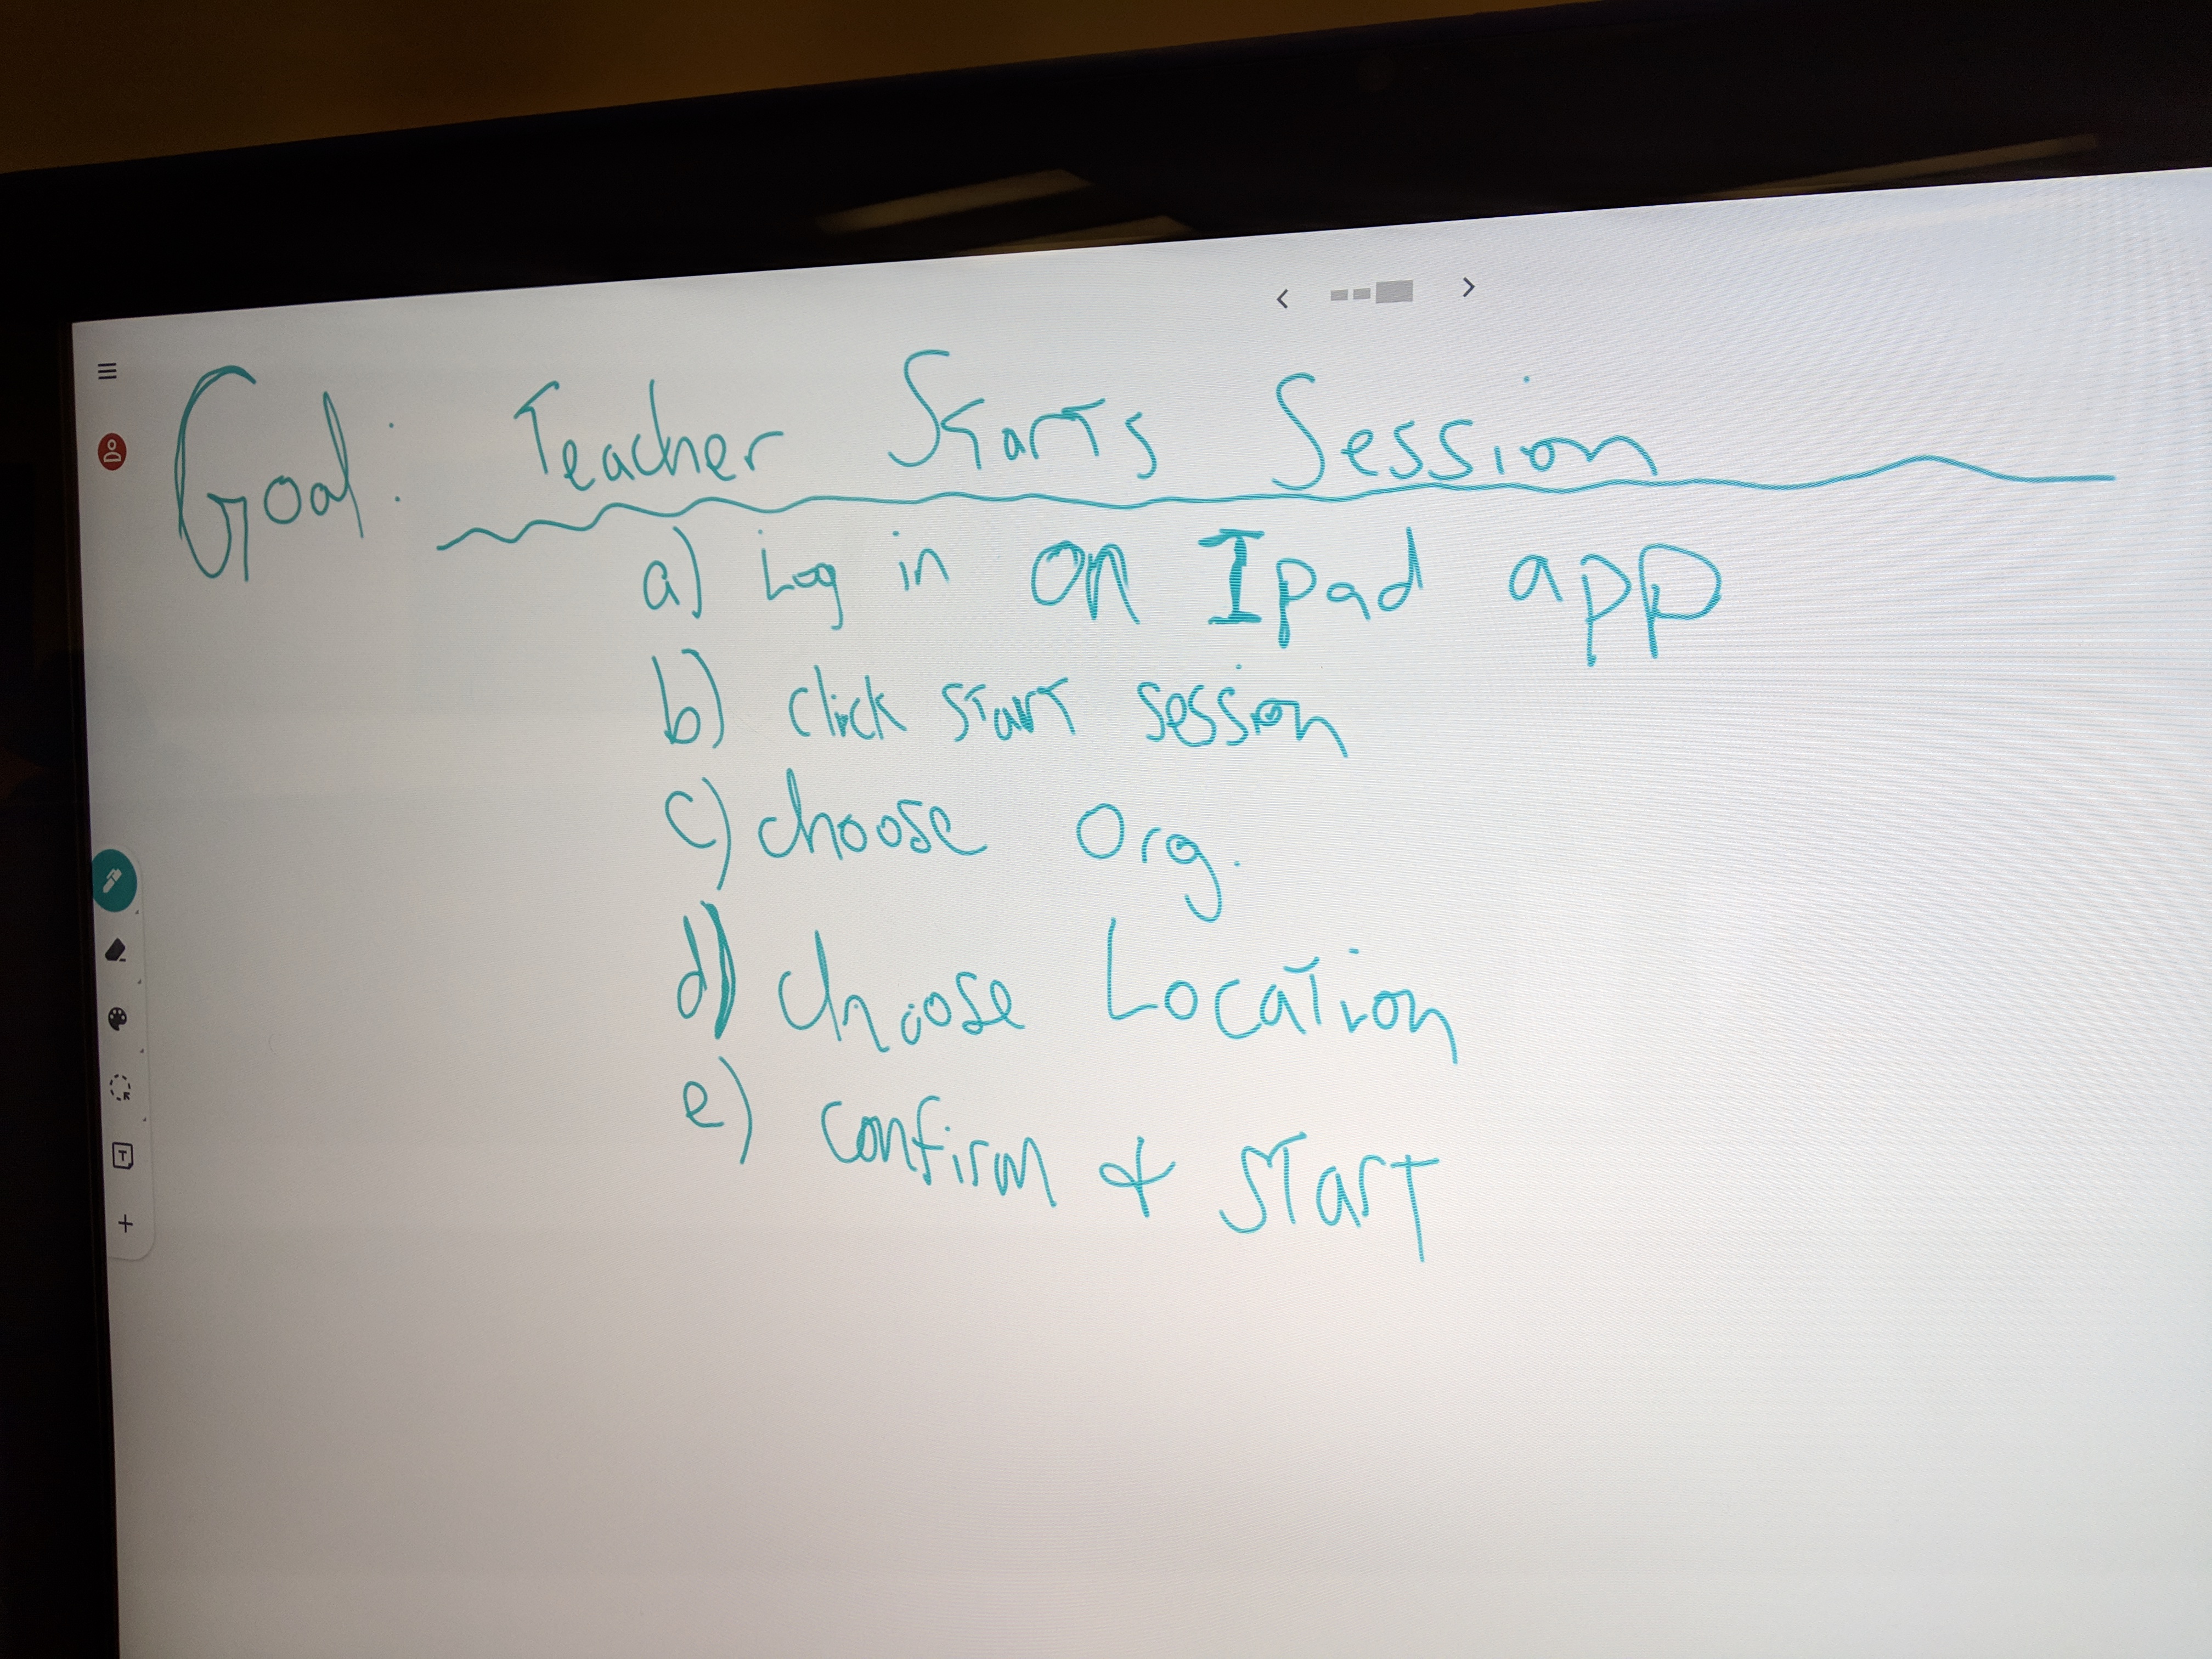 Goal: Teacher Starts Session
a) Log in on Ipad app
b) click start session
c) choose Org.
d) choose Location
e) confirm & start